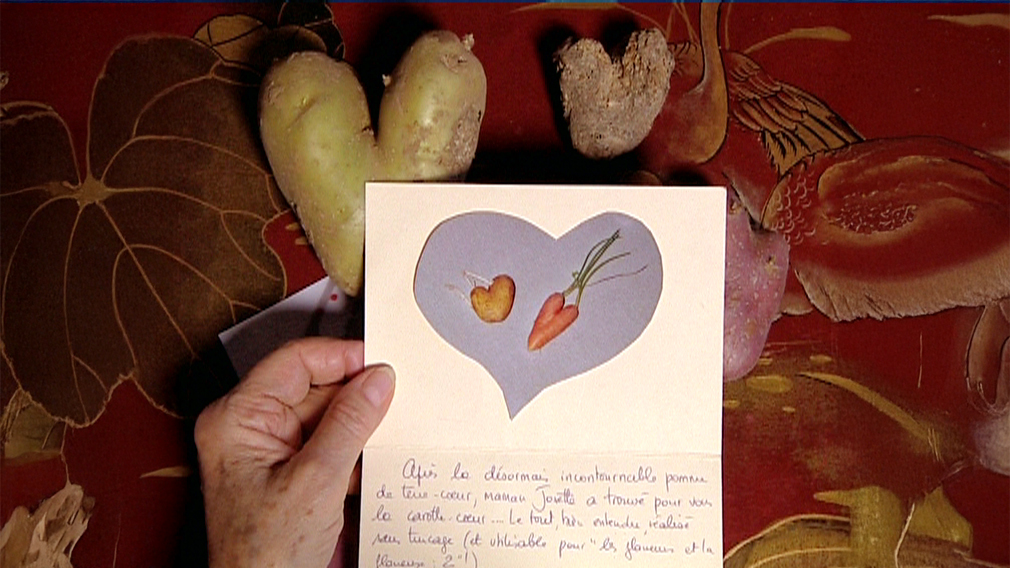 Après la désormais incontournable pomme
de terre-cœur, maman Josette a trouvé pour vous
la carotte-cœur.... Le tout, bien entendu, réalisé
sans trucage (et utilisable pour "les glaneurs et la
glaneuse : 2"!)